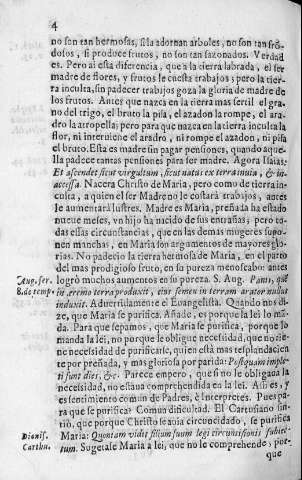 4
no son tan hermosas, si la adornan arboles, no son tan frō-
dosos, si produce frutos, no son tan sazonados. Verdad
es. Pero ai esta diferencia, que a la tierra labrada, el ser
madre de flores, y frutos le cuesta trabajos; pero la tier-
ra inculta, sin padecer trabajos goza la gloria de madre de
los frutos. Antes que nazca en la tierra mas fertil el gra-
no del trigo, el bruto la pisa, el azadon la rompe, el ara-
dro la atropella; pero para que nazca en la tierra inculta la
flor, ni interuiene el aradro, ni rompe el azadon, ni pisa
el bruto. Esta es madre sin pagar pensiones, quando aque-
lla padece tantas pensiones para ser madre. Agora Isaias:
Et ascendet sicut virgultum, sicut natus ex terra inuia, & in-
accessa. Nacera Christo de Maria, pero como de tierra in-
culta, a quien el ser Madre no le costará trabajos, antes
le aumentará lustres. Madre es Maria, preñada ha estado
nueue meses, vn hijo ha nacido de sus entrañas; pero to-
das essas circunstancias, que en las demas mugeres supo-
nen manchas, en Maria son argumentos de mayores glo-
rias. No padecio la tierra hermosa de Maria, en el parto
del mas prodigioso fruto, en su pureza menoscabo: antes
Aug. ser. logró muchos aumentos en su pureza. S. Aug. Panis, qui
8. de temp. in eremo terra produxit, non semen in terram arator nudat
induxit. Aduertidamente el Euangelista. Quando nos di-
ze, que Maria se purifica, Añade, es porque la lei lo mā-
da. Para que sepamos, que Maria se purifica, porque lo
manda la lei, no porque le obligue necesidad, que no tie-
ne necesidad de purificarse, quien está mas resplandecien-
te por preñada, y mas gloriosa por parida: Postquam imple-
ti sunt dies, &c. Parece empero, que si no le obligaua la
necesidad, no estaua comprehendida en la lei. Assi es, y
es sentimiento comun de Padres, è Interpretes. Pues pa-
ra que se purifica? Comun dificultad. El Cartusiano sin-
tiò, que porque Christo se auia circuncidado, se purifica
Dionis. Maria: Quoniam vidit filium suum legi circuncisionis subiec-
Carthu. tum. Sugetase Maria a lei, que no le comprehende; por-
que